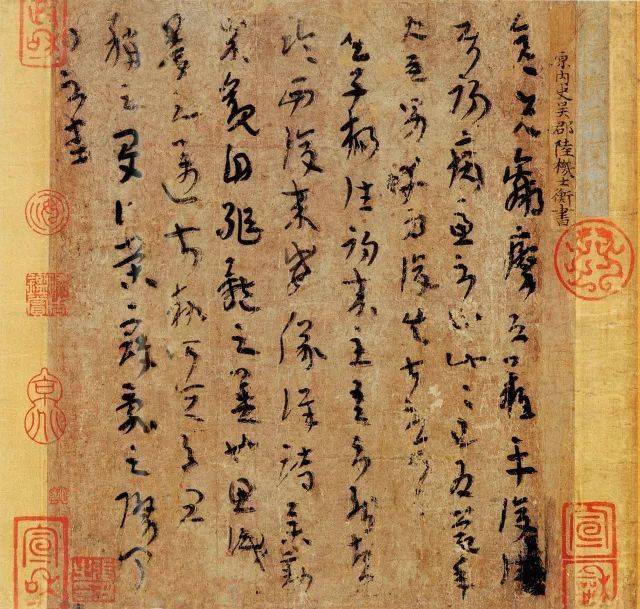 原內史吳郡陸機士衡書
彦先羸瘵恐難平復往屬
初病慮不止此此已為慶承
使唯男幸為復失前憂耳
吳子楊往初來主吾不能盡
臨西復來威儀詳跱舉動
成觀自軀體之美也思識
量之邁前執所恒有宜
稱之夏伯榮寇亂之際聞
問不悉
宣和
宣和